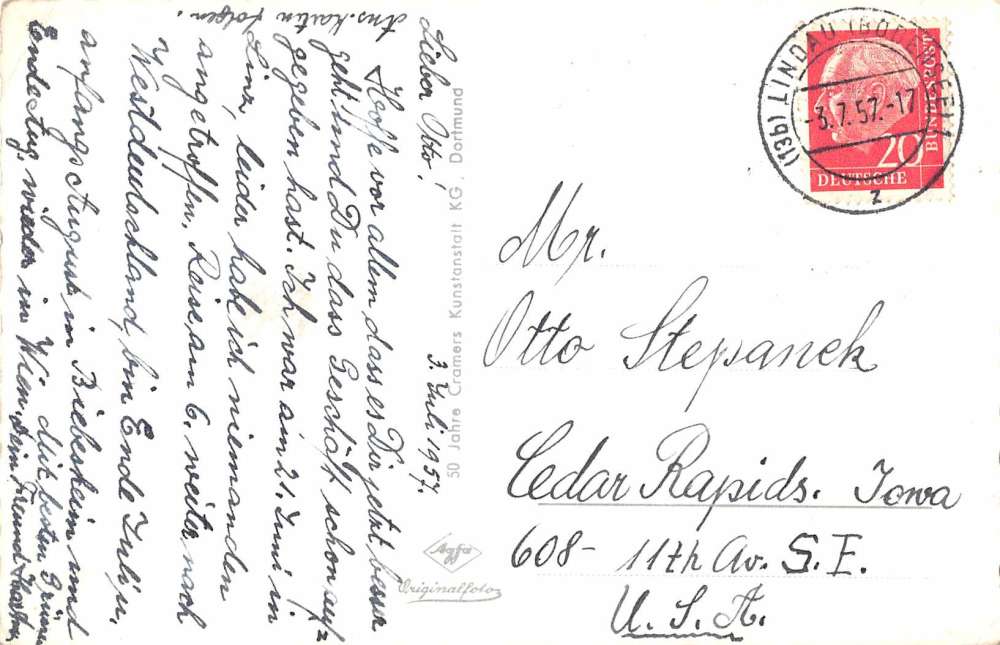 Ans.karten folgen!
3. Juli 1957.
Lieber Otto!
Hoffe vor allem dass es Dir jetzt besser
geht und Du dass Geschäft schon auf=
gegeben hast. Ich war am 21. Juni in
Linz, leider habe ich niemanden
angetroffen. Reise am 6. weiter nach
Westdeutschland, bin Ende Juli u.
anfangs August in Biebesheim und
Ende Aug. wieder in Wien. Mit besten Grüssen
Dein Freund
50 Jahre Cramers Kunstanstalt KG. Dortmund
Agfa
Originalfoto
(13b) LINDAU (BODENSEE) 1
-3.7.57.-17
z
20
DEUTSCHE
BUNDESPOST
Mr.
Otto Stepanek
Cedar Rapids. Iowa
608- 11th Av. S.E.
U.S.A.